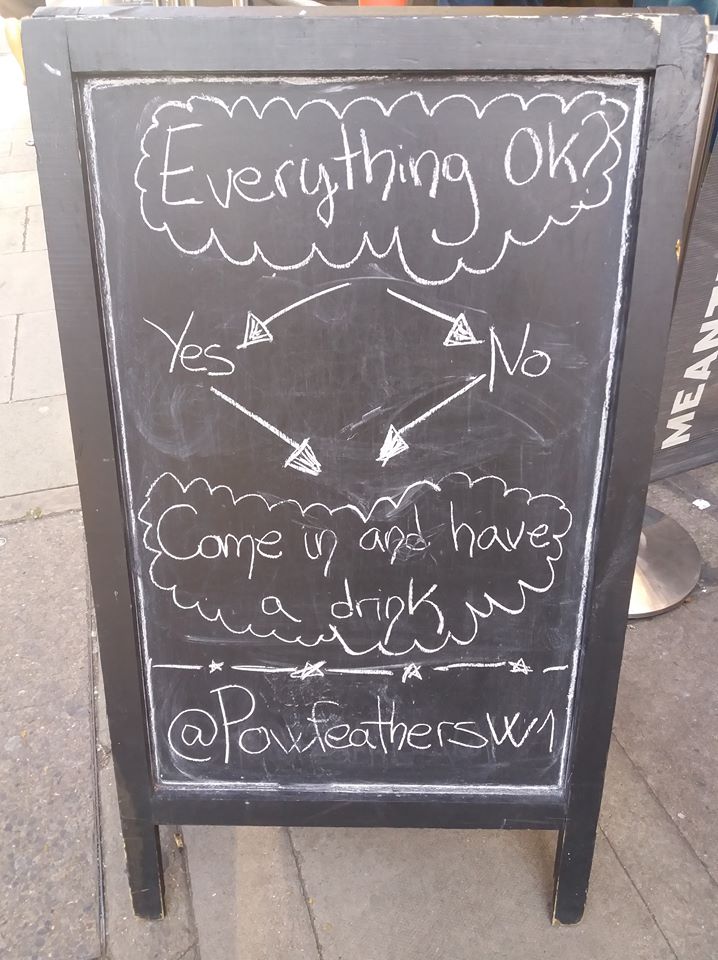 Everything OK?
Yes No
Come in and have
a drink
@PowfeathersW1
MEANT